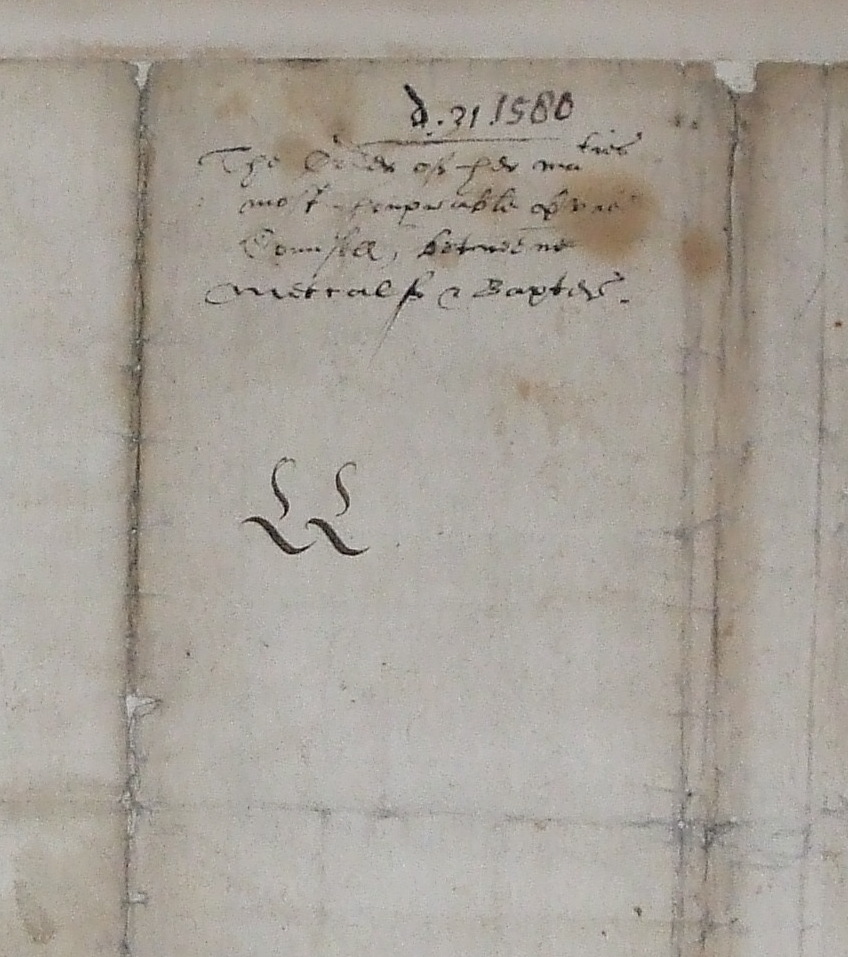 d. 31. 1580
The Order of her ma^ties
most honorable privie
Counsell, betweene
Metcalf & Baxter.
LL